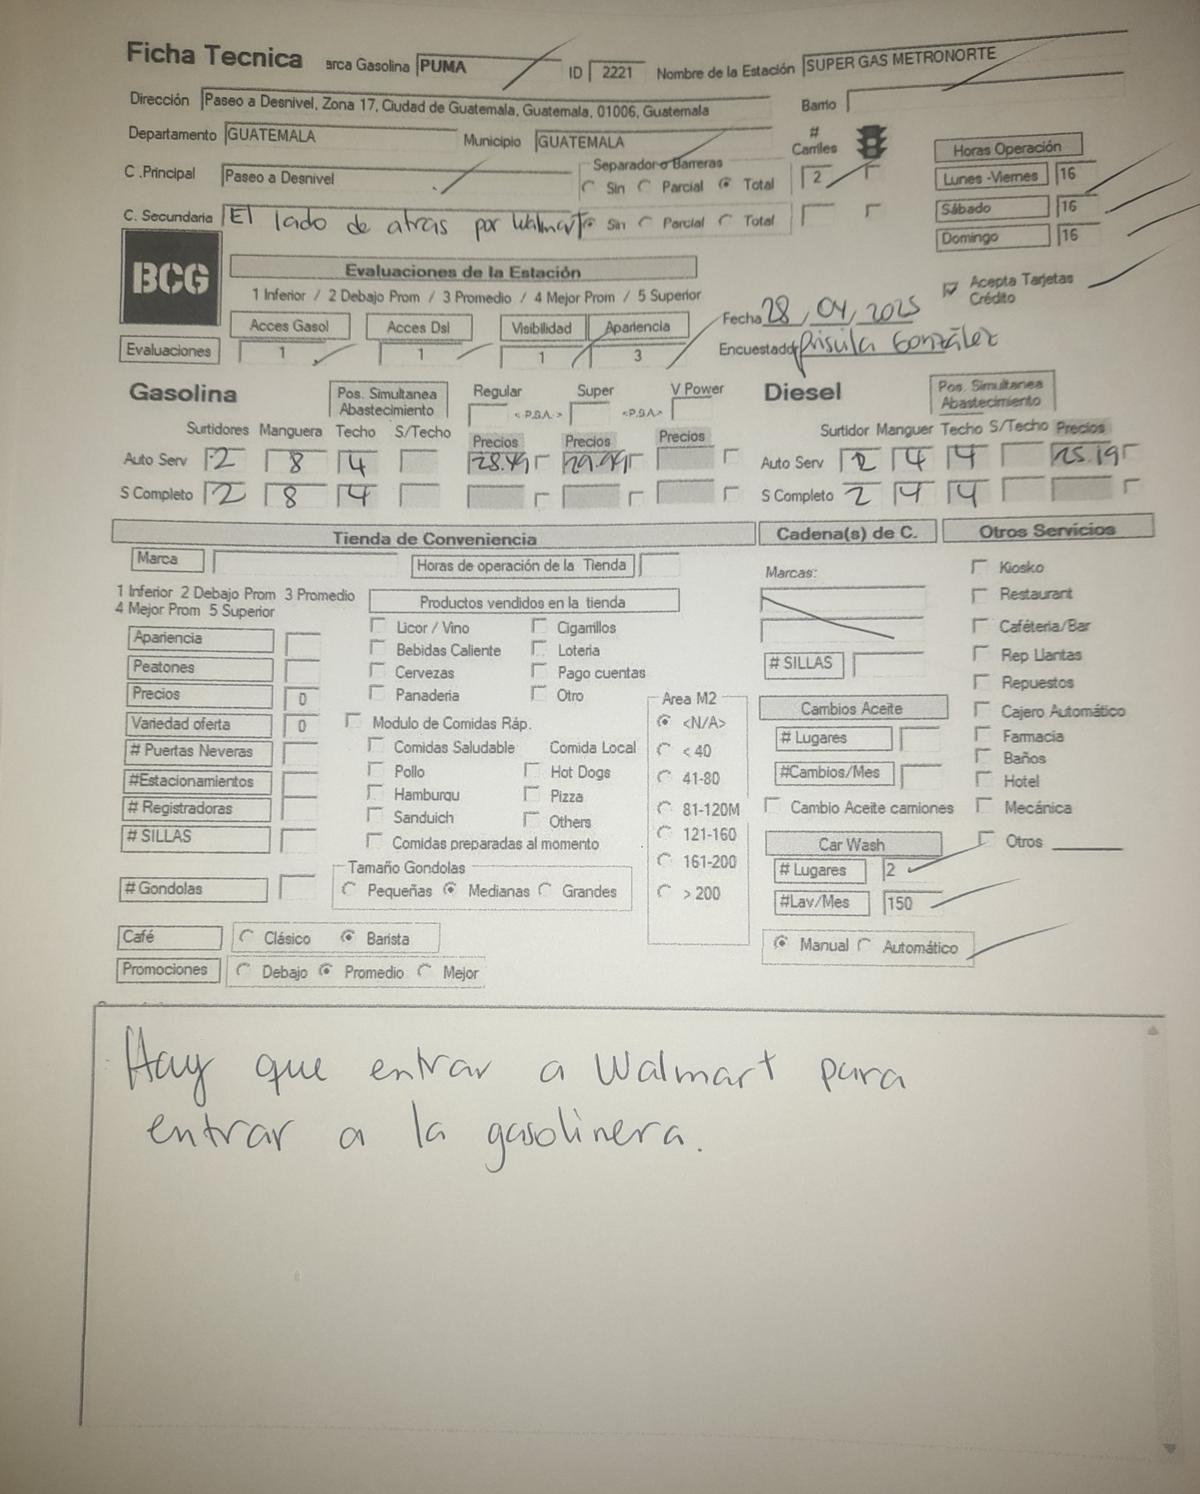 Ficha Tecnica arca Gasolina PUMA ID 2221 Nombre de la Estación SUPER GAS METRONORTE
Dirección Paseo a Desnivel, Zona 17, Ciudad de Guatemala, Guatemala, 01006, Guatemala Barrio
Departamento GUATEMALA Municipio GUATEMALA # Carriles Horas Operación
C .Principal Paseo a Desnivel Separador o Barreras Sin Parcial Total 2 Lunes -Viernes 16
Sábado 16
C. Secundaria El lado de atras por Walmart Sin Parcial Total
Domingo 16
BCG
Evaluaciones de la Estación
1 Inferior / 2 Debajo Prom / 3 Promedio / 4 Mejor Prom / 5 Superior
Acepta Tarjetas Crédito
Fecha 28, 04, 2025
Acces Gasol Acces Dsl Visibilidad Apariencia
Encuestador Prisila González
Evaluaciones 1 1 1 3
Gasolina Pos. Simultanea Abastecimiento Regular Super V Power Diesel Pos. Simultanea Abastecimiento
<P.B.A.> <P.B.A>
Surtidores Manguera Techo S/Techo Precios Precios Precios Surtidor Manguer Techo S/Techo Precios
Auto Serv 2 8 4 28.49 29.99 Auto Serv 2 4 4 25.19
S Completo 2 8 4 S Completo 2 4 4
Tienda de Conveniencia Cadena(s) de C. Otros Servicios
Marca Horas de operación de la Tienda Marcas: Kiosko
1 Inferior 2 Debajo Prom 3 Promedio
4 Mejor Prom 5 Superior
Productos vendidos en la tienda Restaurant
Apariencia Licor / Vino Cigarrillos Caféteria/Bar
Bebidas Caliente Loteria
Peatones Cervezas Pago cuentas # SILLAS Rep Llantas
Precios 0 Panaderia Otro Area M2 Repuestos
Variedad oferta 0 Modulo de Comidas Ráp. <N/A> Cambios Aceite Cajero Automático
# Puertas Neveras Comidas Saludable Comida Local < 40 # Lugares Farmacia
Baños
#Estacionamientos Pollo Hot Dogs 41-80 #Cambios/Mes Hotel
# Registradoras Hamburqu Pizza 81-120M Cambio Aceite camiones Mecánica
# SILLAS Sanduich Others 121-160 Car Wash Otros
Comidas preparadas al momento
Tamaño Gondolas 161-200 # Lugares 2
# Gondolas Pequeñas Medianas Grandes > 200 #Lav/Mes 150
Café Clásico Barista Manual Automático
Promociones Debajo Promedio Mejor
Hay que entrar a Walmart para
entrar a la gasolinera.